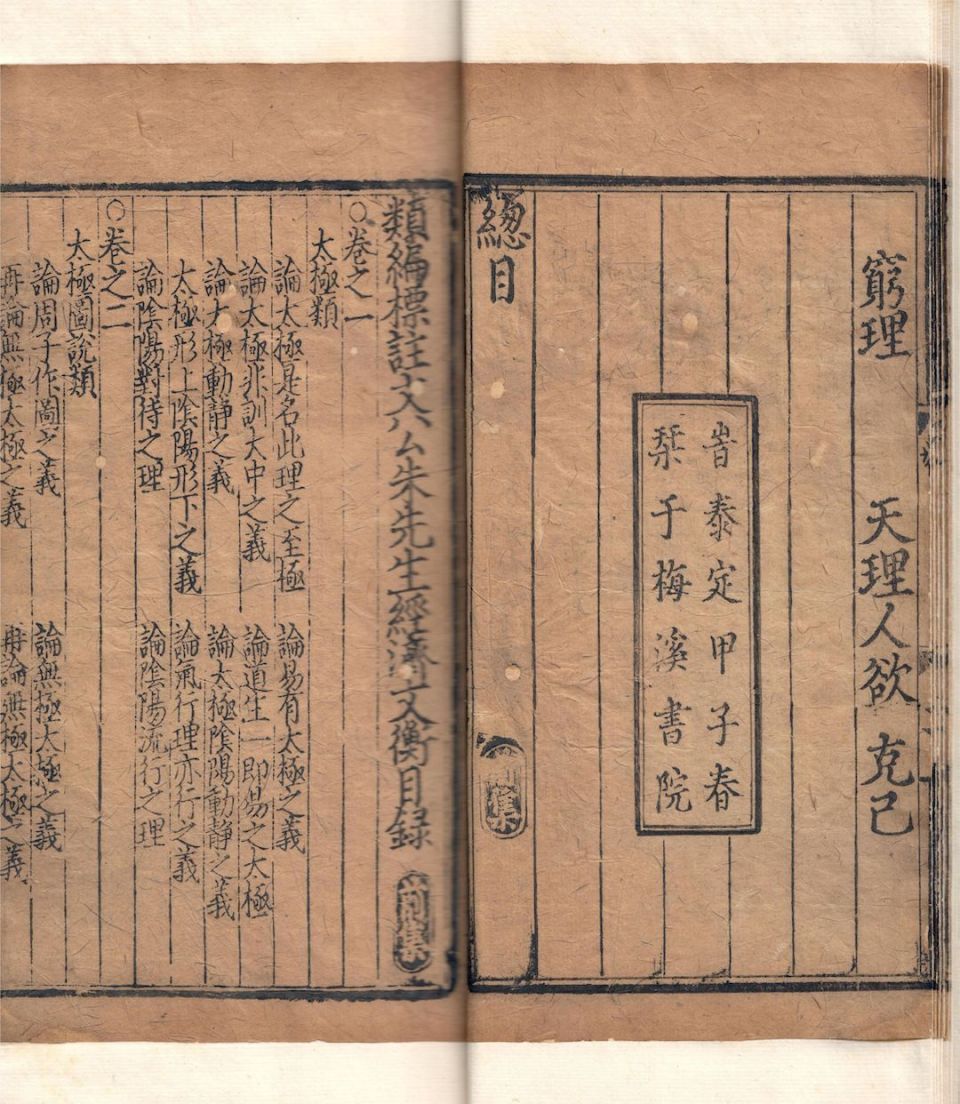 窮理　天理人欲　克己
旹泰定甲子春
栞于梅溪書院
緫目　前集
類編標註文公朱先生經濟文衡目録　前集
○卷之一
太極類
論太極是名此理之至極　論易有太極之義
論太極非訓大中之義　論道生一即易之太極
論太極動靜之義　論太極陰陽動靜之義
太極形上陰陽形下之義　論氣行理亦行之義
論陰陽對待之理　論陰陽流行之理
○卷之二
太極圖說類
論周子作圖之義　論無極太極之義
再論無極太極之義　再論無極太極之義